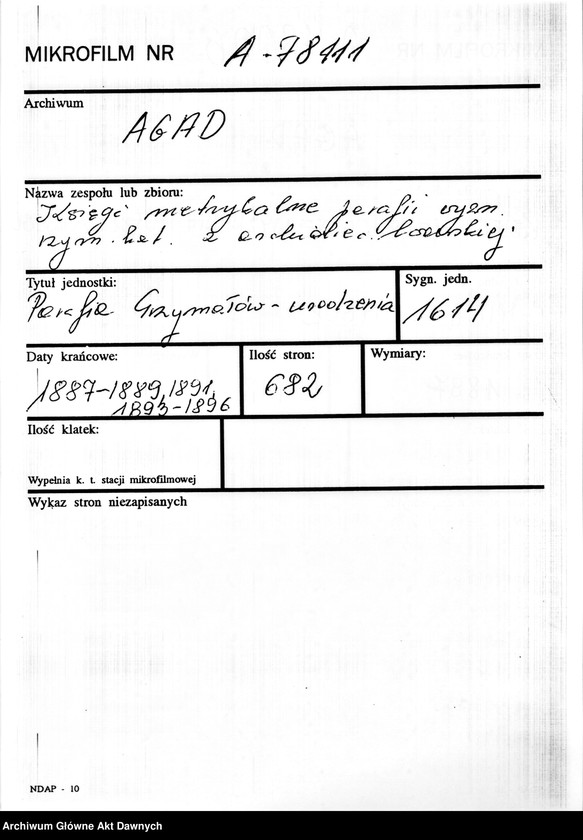 MIKROFILM NR A-78111
Archiwum
AGAD
Nazwa zespołu lub zbioru:
Księgi metrykalne parafii wyzn.
rzym. kat. z archidiec. lwowskiej.
Tytuł jednostki:
Parafia Grzymałów - urodzenia
Sygn. jedn.
1614
Daty krańcowe:
1887-1889, 1891,
1893-1896
Ilość stron:
682
Wymiary:
Ilość klatek:
Wypełnia k. t. stacji mikrofilmowej
Wykaz stron niezapisanych
NDAP - 10
Archiwum Główne Akt Dawnych